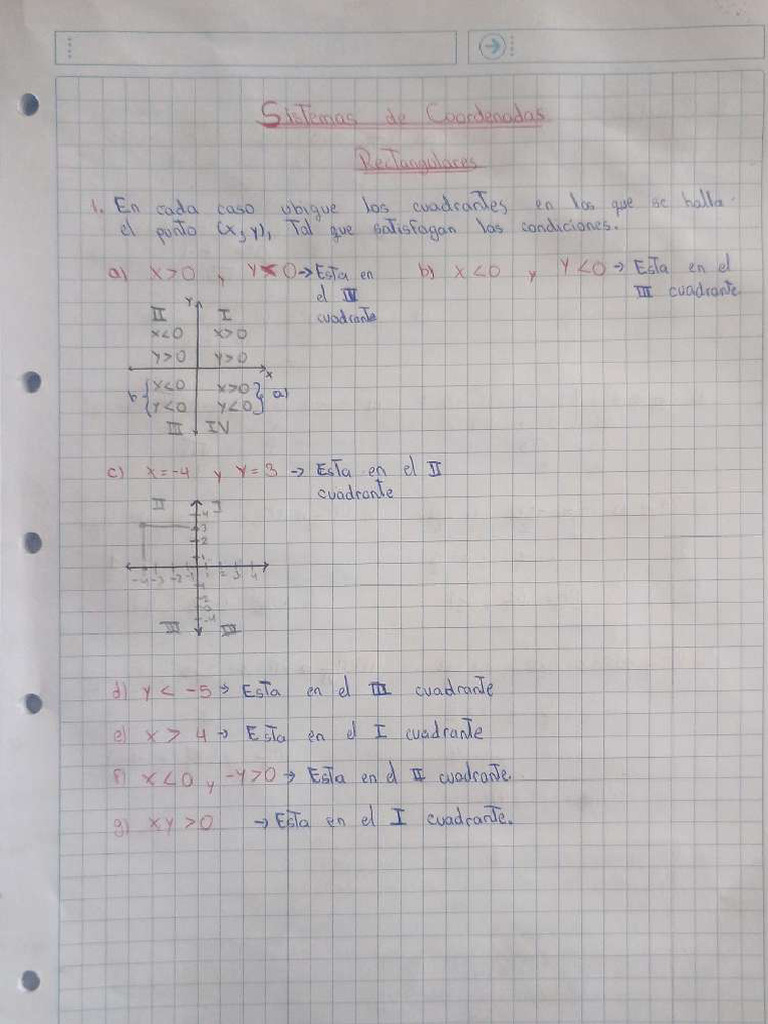 Sistemas de Coordenadas
Rectangulares
1. En cada caso ubique los cuadrantes, en los que se halla
el punto (x, y), Tal que satisfagan las condiciones.
a) x>0 , y<0 → Esta en el IV cuadrante
b) x<0 y y<0 → Esta en el III cuadrante
Y
II I
x<0 x>0
y>0 y>0
x
b { x<0 x>0 } a)
y<0 y<0
III IV
c) x=-4 y y=3 → Esta en el II
cuadrante
II I
4
3
2
1
-4 -3 -2 -1 1 2 3 4
III IV
d) y < -5 → Esta en el III cuadrante
e) x > 4 → Esta en el I cuadrante
f) x<0 y -y>0 → Esta en el II cuadrante
g) xy>0 → Esta en el I cuadrante.